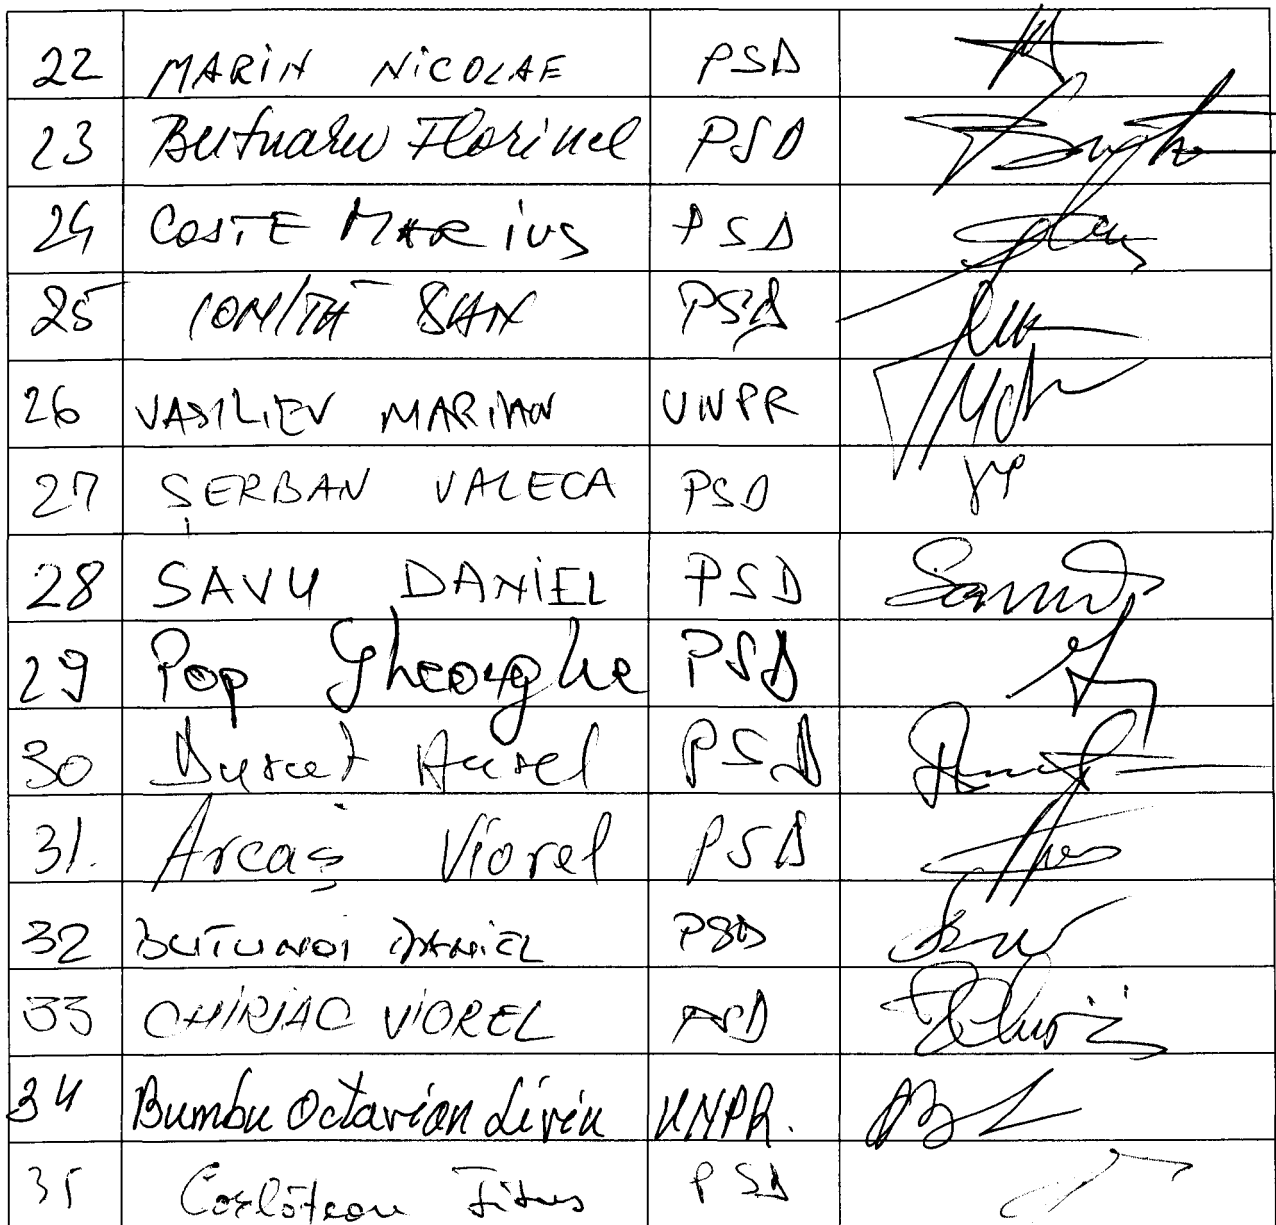 22 MARIN NICOLAE PSD
23 Butnaru Florinel PSD
24 COSTE MARIUS PSD
25 IONIȚĂ DAN PSD
26 VASILIEV MARIAN UNPR
27 ȘERBAN VALECA PSD
28 SAVU DANIEL PSD
29 Pop Gheorghe PSD
30 Duruț Aurel PSD
31. Arcaș Viorel PSD
32 BUTUNOI DANIEL PSD
33 CHIRIAC VIOREL PSD
34 Bumbu Octavian Liviu UNPR.
35 Corlățean Titus PSD